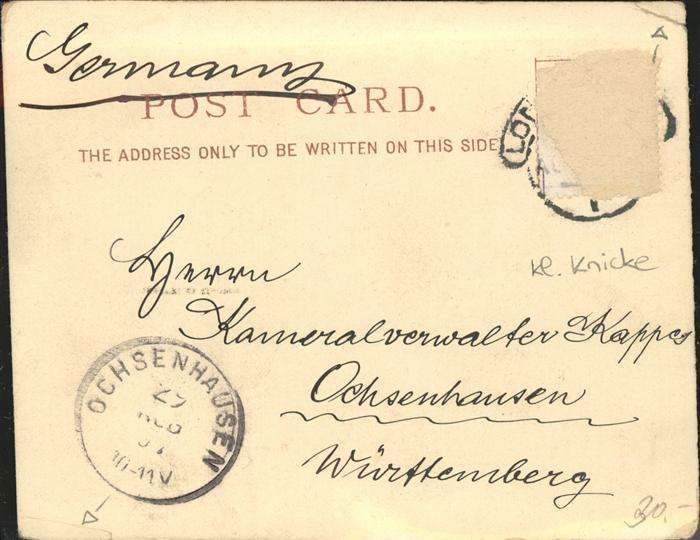 Germany
POST CARD.
THE ADDRESS ONLY TO BE WRITTEN ON THIS SIDE
LO
kl. Knicke
Herrn
Kameralverwalter Kappes
Ochsenhausen
Württemberg
OCHSENHAUSEN
29
10-11V
30.-